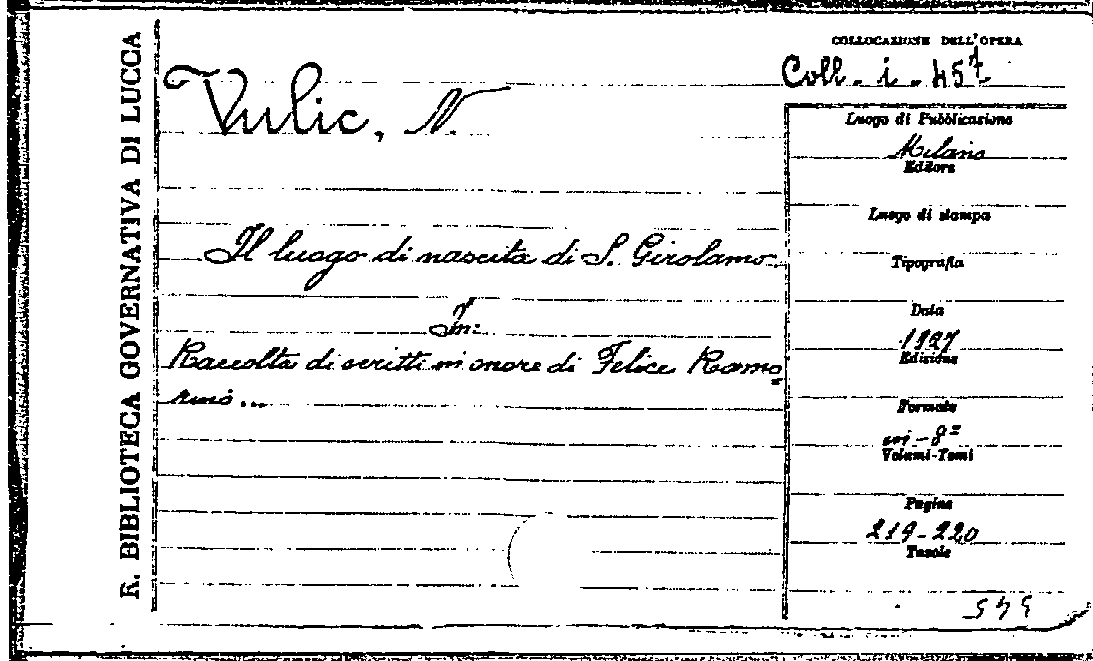 R. BIBLIOTECA GOVERNATIVA DI LUCCA
Vulic, N.
Il luogo di nascita di S. Girolamo.
In:
Raccolta di scritti in onore di Felice Ramo=
rino...
COLLOCAZIONE DELL'OPERA
Coll. i. 457
Luogo di Pubblicazione
Milano
Editore
Luogo di stampa
Tipografia
Data
1927
Edizione
Formato
in-8º
Volumi-Tomi
Pagine
219-220
Tavole
545